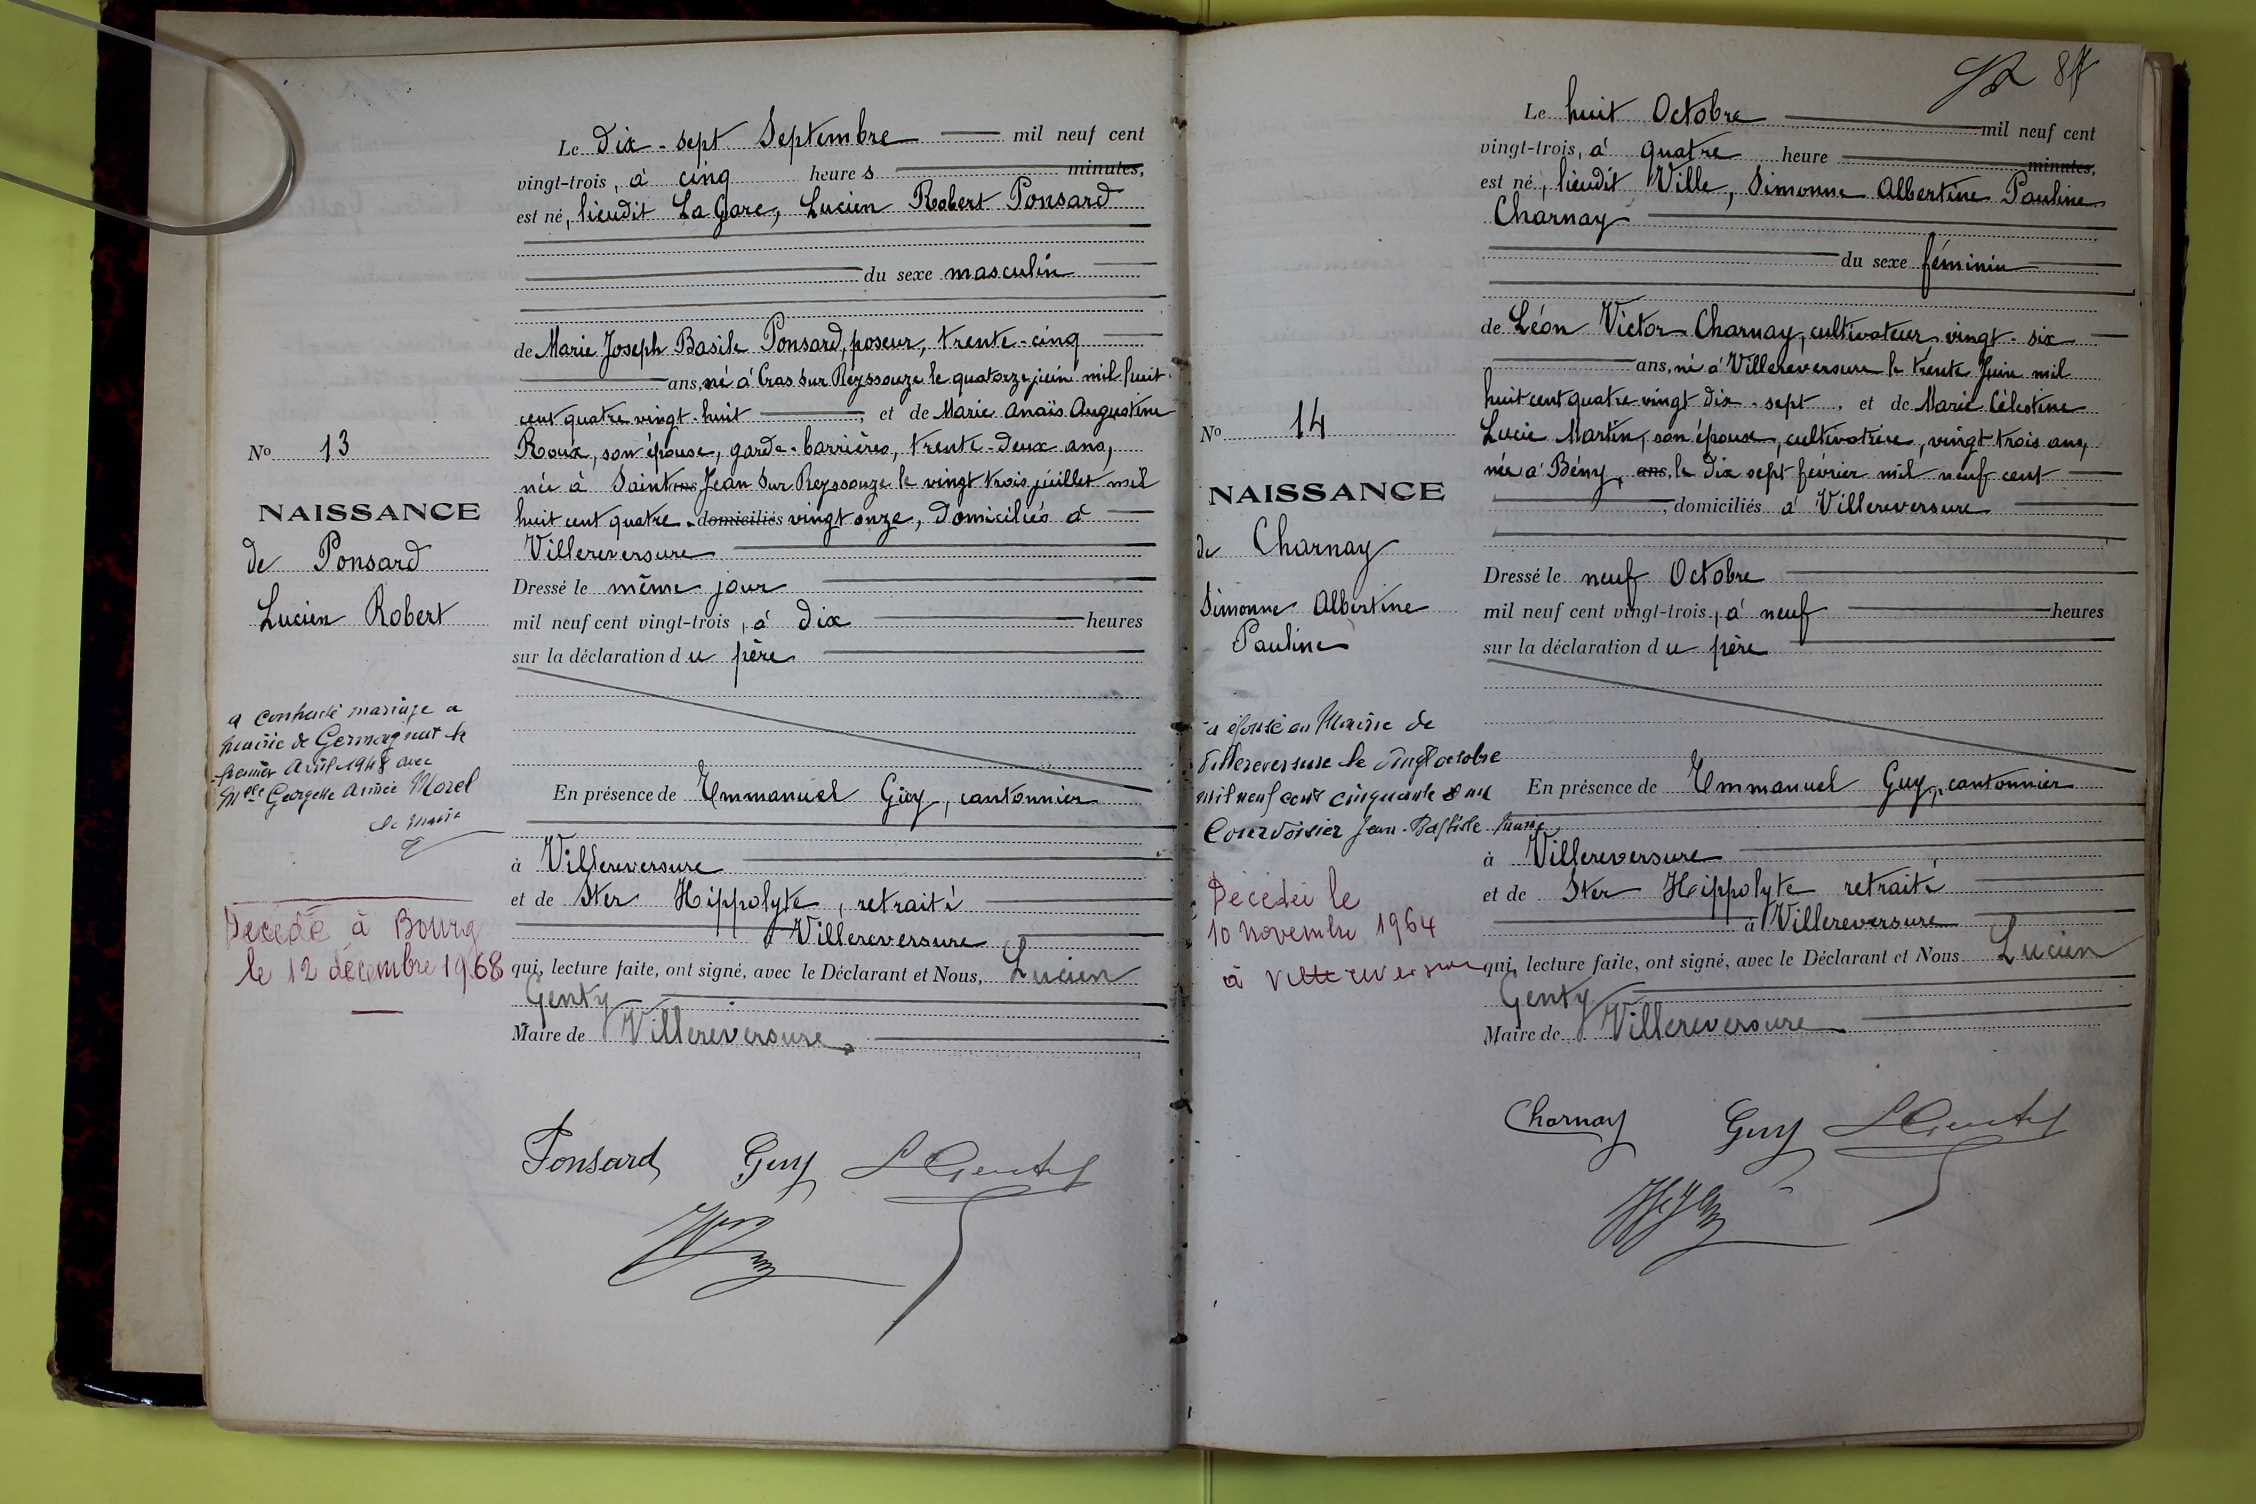 Le dix-sept Septembre mil neuf cent
vingt-trois, à cinq heures minutes,
est né, lieudit La Gare, Lucien Robert Ponsard
du sexe masculin
de Marie Joseph Basile Ponsard, poseur, trente-cinq
ans, né à Cras sur Reyssouze le quatorze juin mil huit
cent quatre vingt-huit, et de Marie Anaïs Augustine
Roux, son épouse, garde-barrières, trente-deux ans,
née à Saint ans Jean sur Reyssouze le vingt trois juillet mil
huit cent quatre domiciliés vingt onze, domiciliés à
Villereversure
Dressé le même jour
mil neuf cent vingt-trois, à dix heures
sur la déclaration du père
En présence de Emmanuel Guy, cantonnier
à Villereversure
et de Ster Hippolyte, retraité
à Villereversure
qui, lecture faite, ont signé, avec le Déclarant et Nous, Lucien
Genty
Maire de Villereversure.
Ponsard Guy L Genty
No 13
NAISSANCE
de Ponsard
Lucien Robert
a contracté mariage a
mairie de Germagnat le
premier Avril 1948 avec
Melle Georgette Aimée Morel
le Maire
Décédé à Bourg
le 12 décembre 1968
8
Le huit Octobre mil neuf cent
vingt-trois, à quatre heure minutes,
est né, lieudit Ville, Simonne Albertine Pauline
Charnay
du sexe féminin
de Léon Victor Charnay, cultivateur, vingt-six
ans, né à Villereversure le trente Juin mil
huit cent quatre vingt dix-sept, et de Marie Célestine
Lucie Martin, son épouse, cultivatrice, vingt trois ans,
née à Bény, ans, le dix sept février mil neuf cent
, domiciliés à Villereversure
Dressé le neuf Octobre
mil neuf cent vingt-trois, à neuf heures
sur la déclaration du père
En présence de Emmanuel Guy, cantonnier
à Villereversure
et de Ster Hippolyte retraité
à Villereversure
qui, lecture faite, ont signé, avec le Déclarant et Nous Lucien
Genty
Maire de Villereversure
Charnay Guy L Genty
No 14
NAISSANCE
de Charnay
Simonne Albertine
Pauline
a épousé en Mairie de
Villereversure le vingt octobre
mil neuf cent cinquante
Courvoisier Jean-Baptiste Marie
Décédée le
10 novembre 1964
à Villereversure